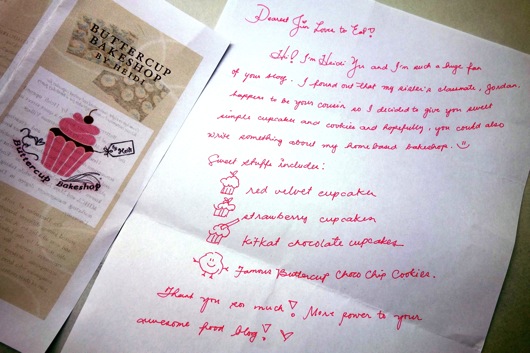 BUTTERCUP
BAKESHOP
BY HEIDI
By Heidi
Buttercup Bakeshop
Dearest Jin Loves to Eat!
Hi! I'm Heidi Yu and I'm such a huge fan
of your blog. I found out that my sister's classmate, Jordan,
happens to be your cousin so I decided to give you sweet
simple cupcakes and cookies and hopefully, you could also
write something about my home based bakeshop.
Sweet stuffs include:
red velvet cupcakes
strawberry cupcakes
kitkat chocolate cupcakes
Famous Buttercup Choco Chip Cookies.
Thank you so much! More power to your
awesome food blog!